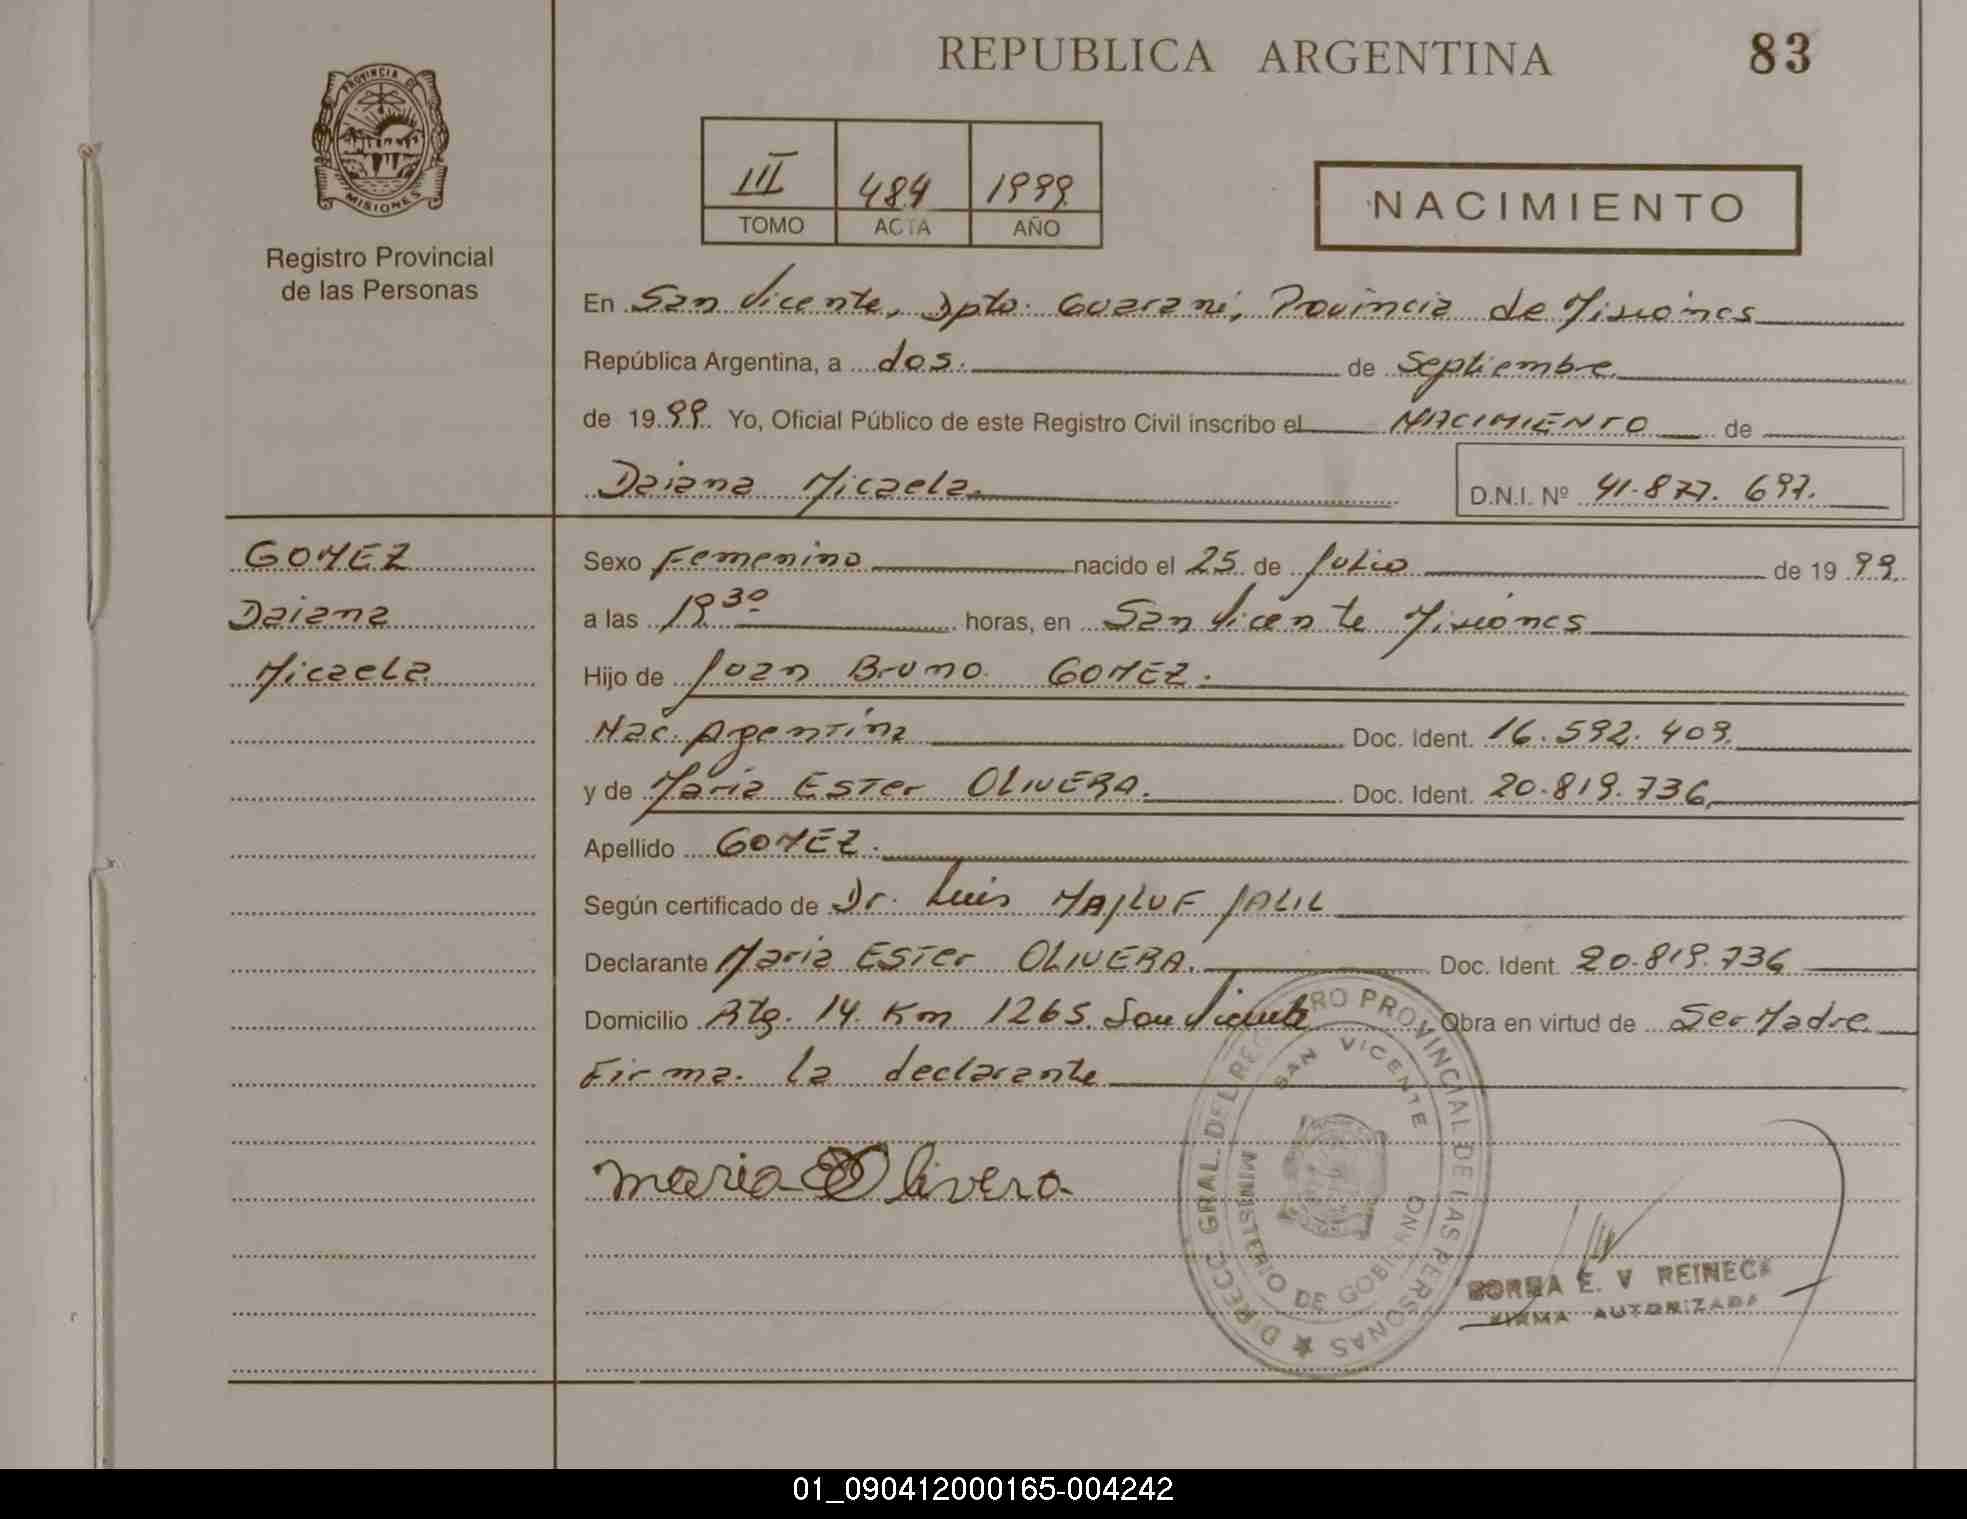 REPUBLICA ARGENTINA
83
PROVINCIA DE
MISIONES
Registro Provincial
de las Personas
III 484 1999
TOMO ACTA AÑO
NACIMIENTO
En San Vicente, Dpto. Guarani, Provincia de Misiones
República Argentina, a dos. de Septiembre
de 1999 Yo, Oficial Público de este Registro Civil inscribo el NACIMIENTO de
Daiana Micaela. D.N.I. Nº 41.877.697.
GOMEZ
Daiana
Micaela
Sexo Femenino nacido el 25 de Julio de 1999.
a las 19 30 horas, en San Vicente Misiones
Hijo de Juan Bruno GOMEZ.
Nac. Argentina Doc. Ident. 16.592.409.
y de Maria Ester OLIVERA. Doc. Ident. 20.819.736
Apellido GOMEZ.
Según certificado de Dr. Luis MAJLUF JALIL
Declarante Maria Ester OLIVERA. Doc. Ident. 20.819.736
Domicilio Rtg. 14 Km 1265. San Vicente Obra en virtud de Ser Madre
Firma la declarante
Maria E Olivera
DIRECC. GRAL. DEL REGISTRO PROVINCIAL DE LAS PERSONAS
SAN VICENTE
MINISTERIO DE GOBIERNO
E. V REINECK
FIRMA AUTORIZADA
01_090412000165-004242